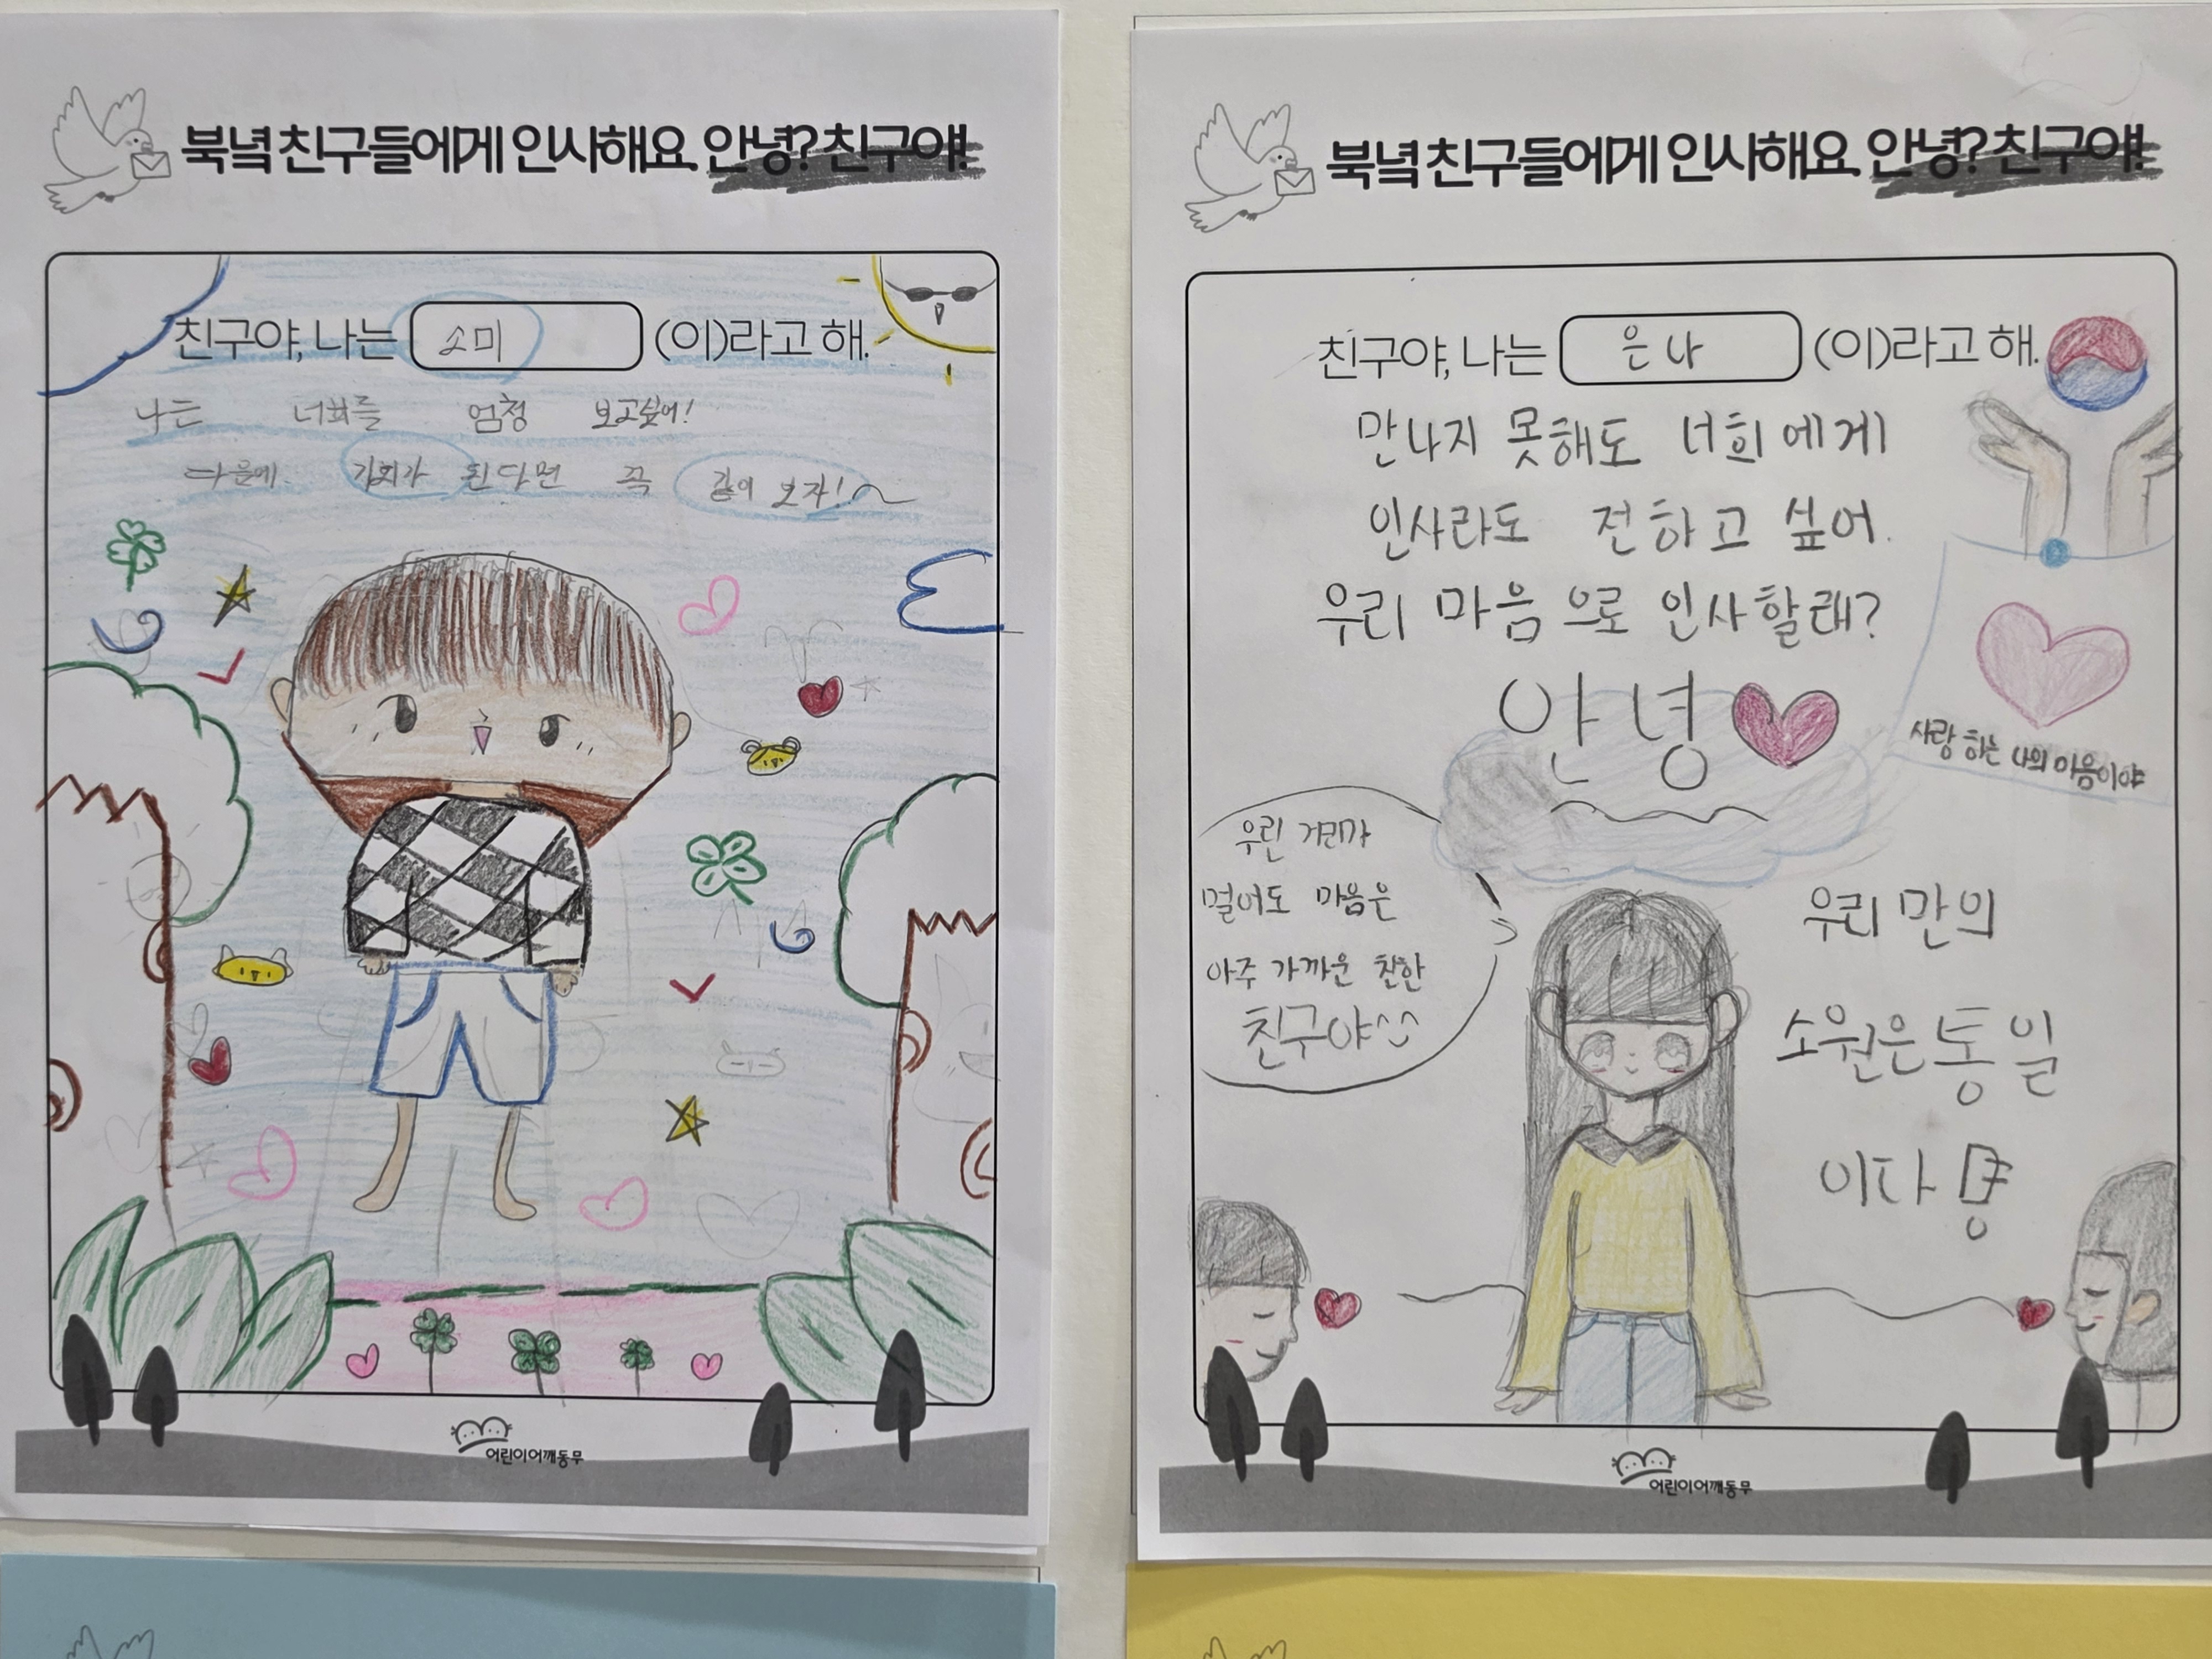 북녘 친구들에게 인사해요. 안녕? 친구야!
친구야, 나는 소미 (이)라고 해.
나는 너희를 엄청 보고싶어!
다음에 기회가 된다면 꼭 같이 보자!~
어린이어깨동무
북녘 친구들에게 인사해요. 안녕? 친구야!
친구야, 나는 은나 (이)라고 해.
만나지 못해도 너희에게
인사라도 전하고 싶어.
우리 마음으로 인사할래?
안녕
사랑하는 나의 마음이야
우린 거리가
멀어도 마음은
아주 가까운 친한
친구야^^
우리만의
소원은 통일
이다
어린이어깨동무